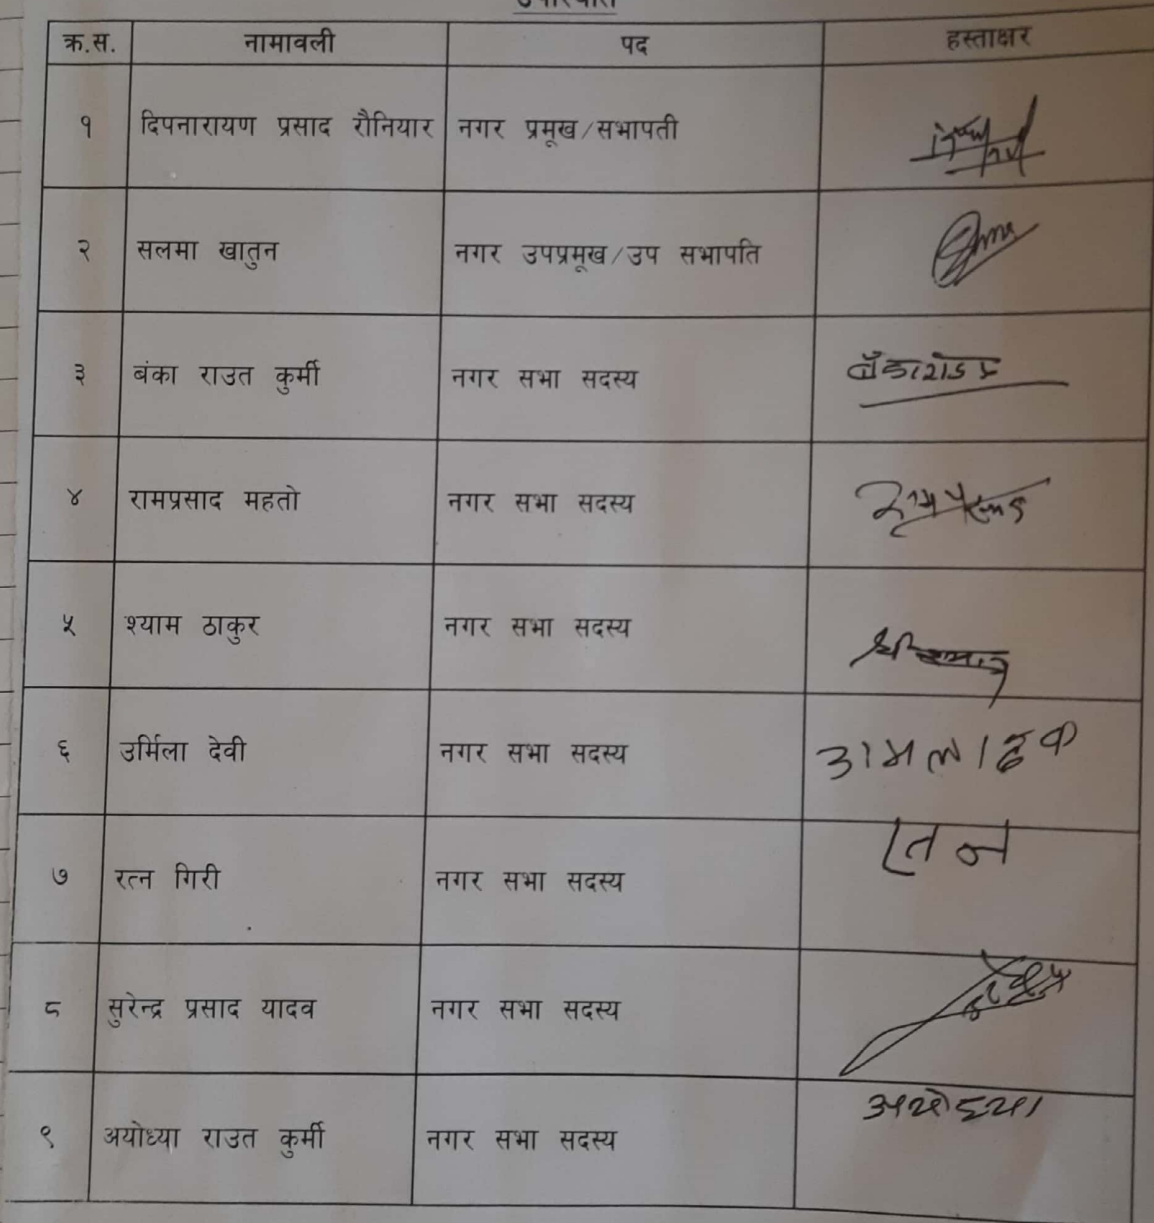 उपस्थिति
क्र.स. नामावली पद हस्ताक्षर
१ दिपनारायण प्रसाद रौनियार नगर प्रमूख/सभापती
२ सलमा खातुन नगर उपप्रमूख/उप सभापति
३ बंका राउत कुर्मी नगर सभा सदस्य
४ रामप्रसाद महतो नगर सभा सदस्य
५ श्याम ठाकुर नगर सभा सदस्य
६ उर्मिला देवी नगर सभा सदस्य
७ रत्न गिरी नगर सभा सदस्य रतन
८ सुरेन्द्र प्रसाद यादव नगर सभा सदस्य
९ अयोध्या राउत कुर्मी नगर सभा सदस्य अयोध्या